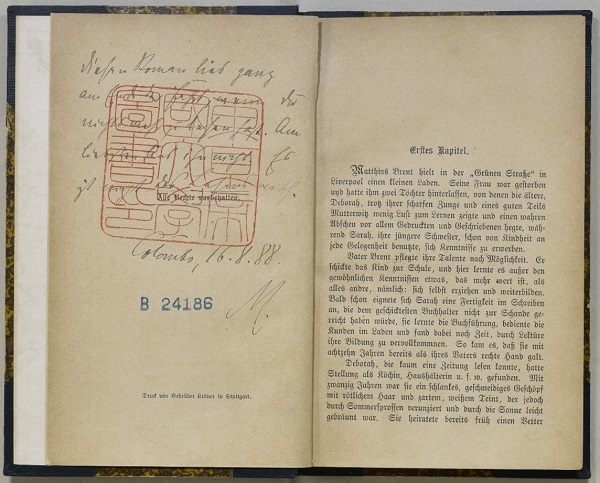 diesen Roman lies ganz
am Ende der
nicht
nicht. Es
ist nicht
Alle Rechte vorbehalten.
Colombo, 16.8.88.
B 24186
M.
Druck von Gebrüder Kröner in Stuttgart.
Erstes Kapitel.
Matthias Brent hielt in der „Grünen Straße“ in
Liverpool einen kleinen Laden. Seine Frau war gestorben
und hatte ihm zwei Töchter hinterlassen, von denen die ältere,
Deborah, trotz ihrer scharfen Zunge und eines guten Teils
Mutterwitz wenig Lust zum Lernen zeigte und einen wahren
Abscheu vor allem Gedruckten und Geschriebenen hegte, wäh-
rend Sarah, ihre jüngere Schwester, schon von Kindheit an
jede Gelegenheit benutzte, sich Kenntnisse zu erwerben.
Vater Brent pflegte ihre Talente nach Möglichkeit. Er
schickte das Kind zur Schule, und hier lernte es außer den
gewöhnlichen Kenntnissen etwas, das mehr wert ist, als
alles andre, nämlich: sich selbst erziehen und weiterbilden.
Bald schon eignete sich Sarah eine Fertigkeit im Schreiben
an, die dem geschicktesten Buchhalter nicht zur Schande ge-
reicht haben würde, sie lernte die Buchführung, bediente die
Kunden im Laden und fand dabei noch Zeit, durch Lektüre
ihre Bildung zu vervollkommnen. So kam es, daß sie mit
achtzehn Jahren bereits als ihres Vaters rechte Hand galt.
Deborah, die kaum eine Zeitung lesen konnte, hatte
Stellung als Köchin, Haushälterin u. s. w. gefunden. Mit
zwanzig Jahren war sie ein schlankes, geschmeidiges Geschöpf
mit rötlichem Haar und zartem, weißem Teint, der jedoch
durch Sommersprossen verunziert und durch die Sonne leicht
gebräunt war. Sie heiratete bereits früh einen Vetter